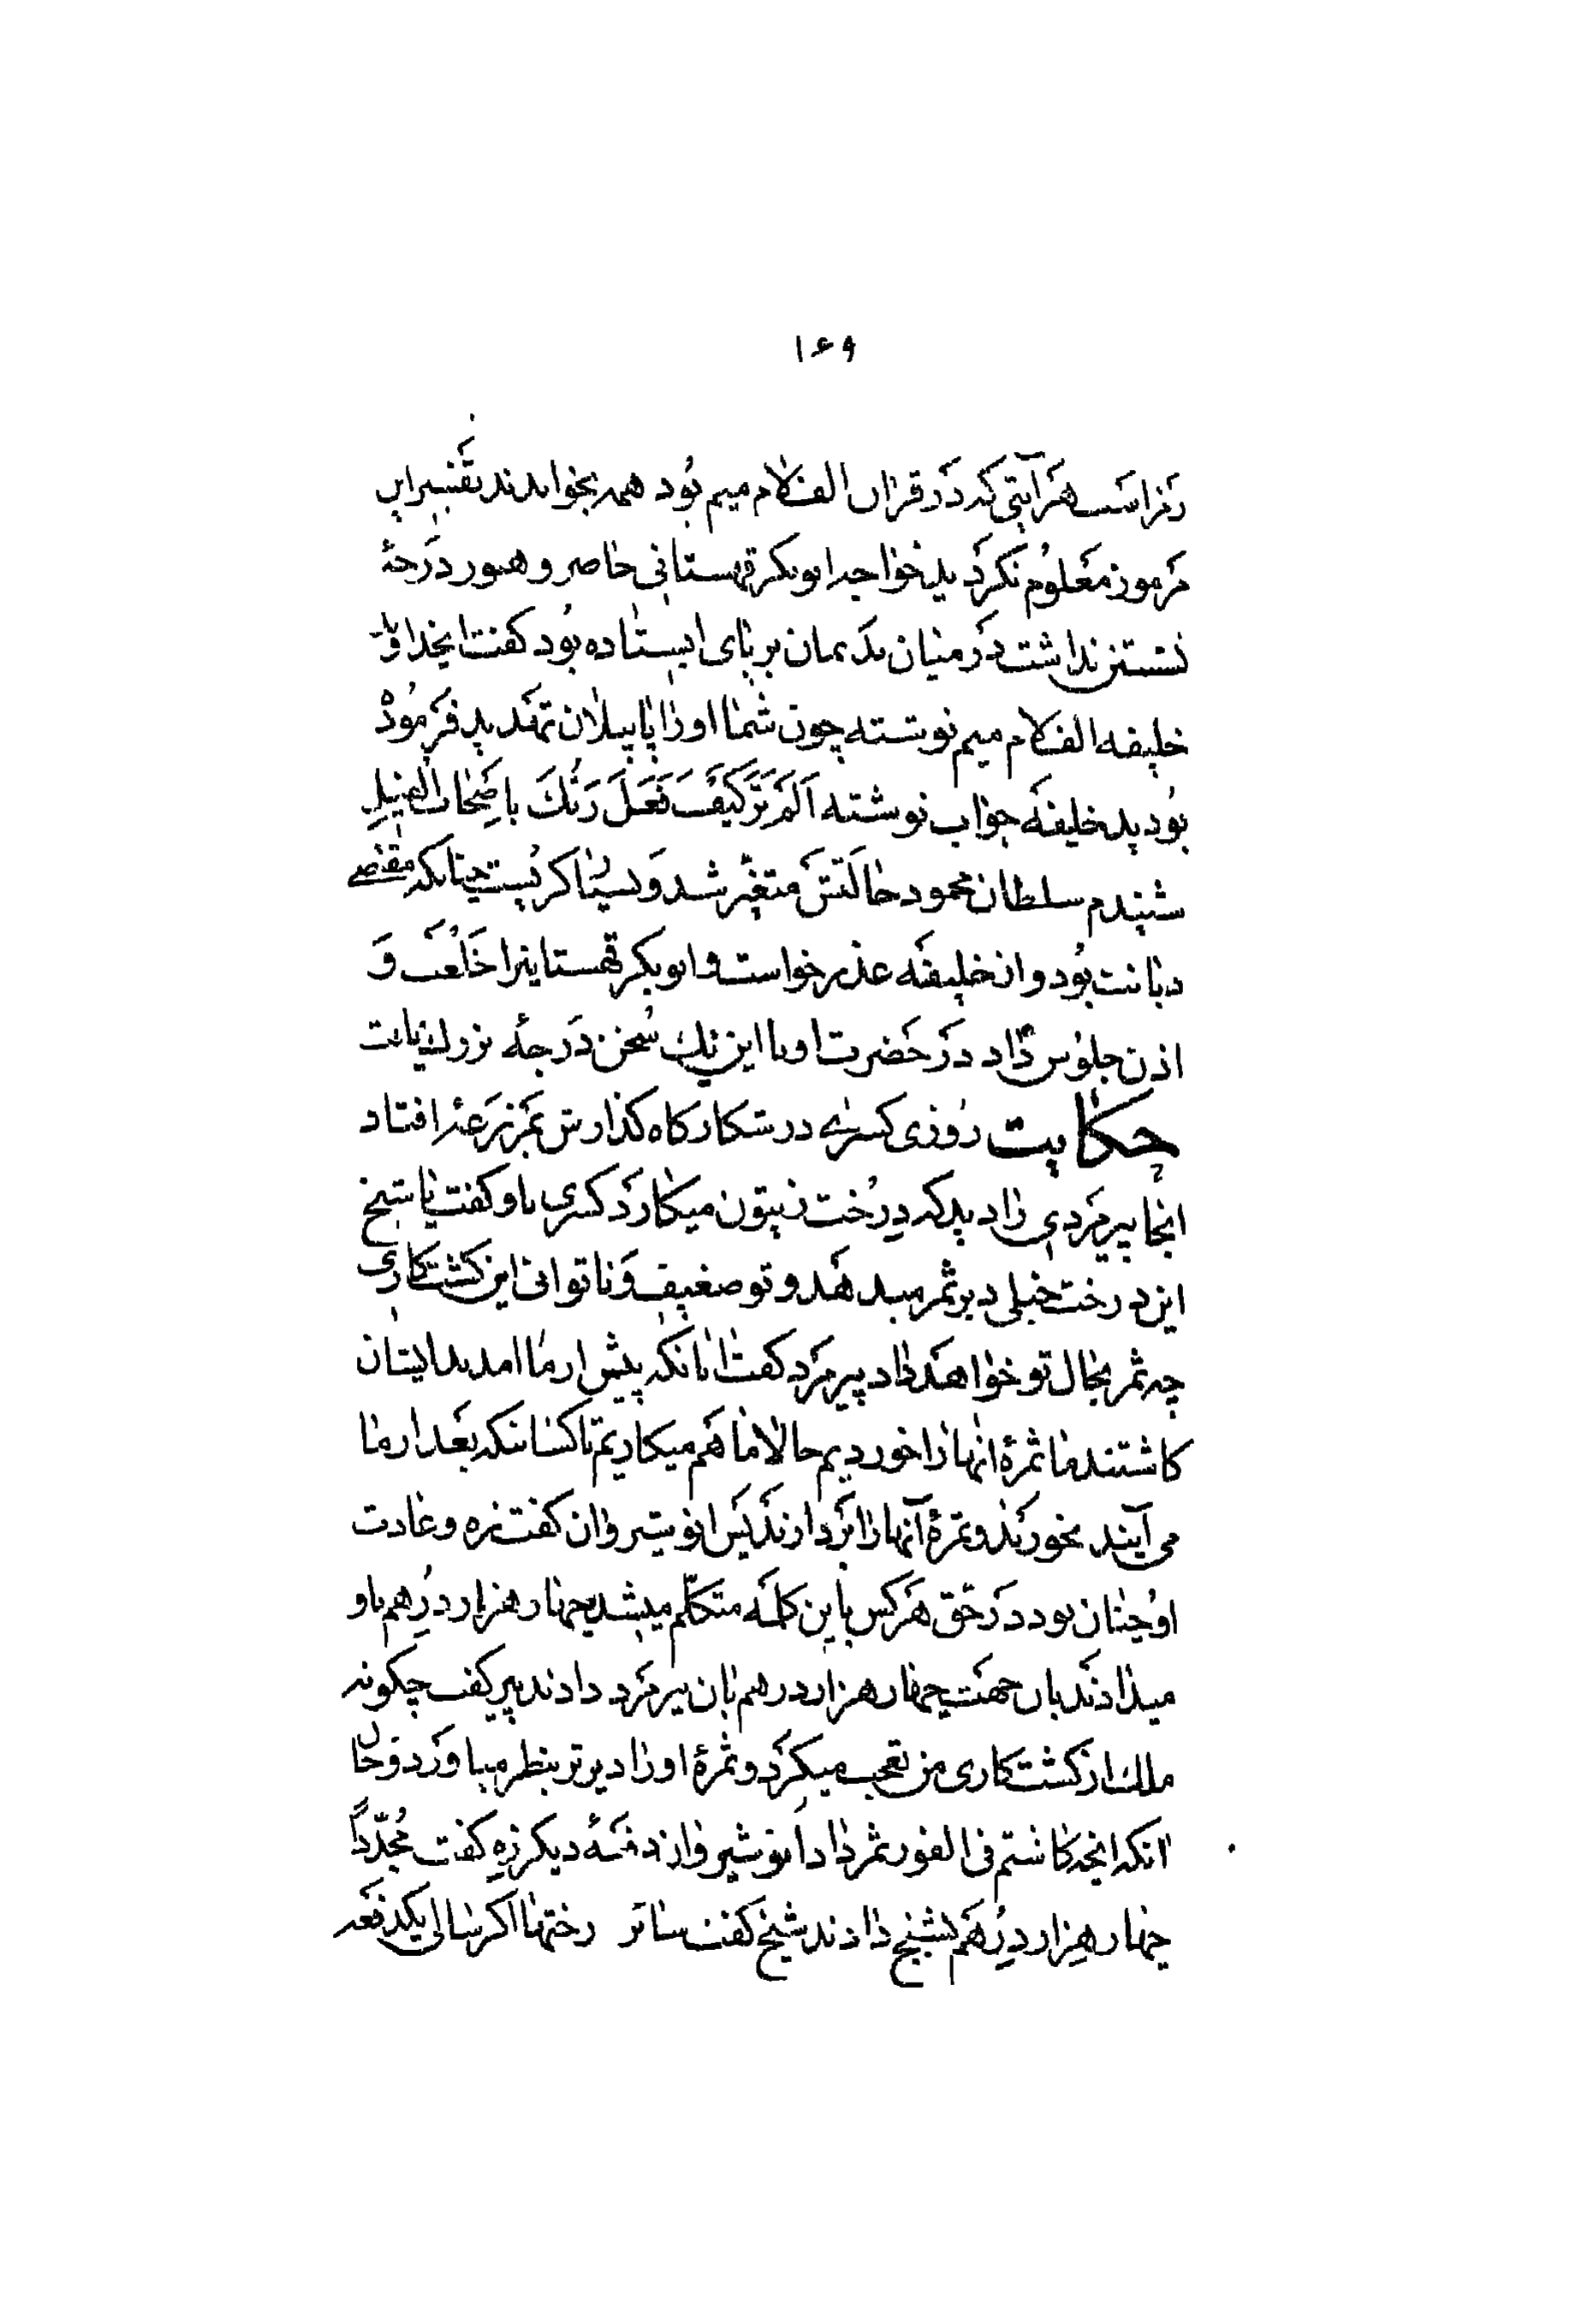 ۱۶۹
رمز است هر آیتی که در قرآن الف لام میم بود همه بخواندند تفسیر این
مرموز معلوم نکردید خواجه ابوبکر قهستانی حاضر و هنوز درجهٔ
نشستن نداشت در میان ندیمان بر پای ایستاده بود کفت ایخداوند
خلیفه الف لام میم نوشته چون شما او را با پیلان تهدید فرموده
بودید خلیفه جواب نوشته اَلَمْ تَرَ کَیْفَ فَعَلَ رَبُّکَ باَصْحابِ الْفِیلِ
شنیدم سلطان محمود حالتش متغیّر شد و بسیار کریست چنانکه مقتضی
دیانت بود و از خلیفه عذر خواست و ابوبکر قهستانیرا خلعت و
اذن جلوس داد در حضرت او با این یک سخن درجهٔ بزرک یافت
حکایت روزی کسری در شکارکاه کذارش بمزرعهٔ افتاد
انجا پیرمردی را دید که درخت زیتون میکارد کسری باو کفت یا شیخ
این درخت خیلی دیر ثمر میدهد و تو ضعیف و ناتوانی این کشتکاری
چه ثمر بحال تو خواهد داد پیرمرد کفت انانکه پیش از ما امدند ایشان
کاشتند ما ثمرهٔ انها را خوردیم حالا ما هم میکاریم تا کسانیکه بعد از ما
می آیند بخورند و ثمرهٔ آنها را بردارند پس انوشیروان کفت زه و عادت
او چنان بود در حق هر کس باین کلمه متکلّم میشد چهار هزار درهم باو
میدادند بان جهت چهار هزار درهم بان پیرمرد دادند پیر کفت چکونه
ملک از کشتکاری من تعجب میکرد و ثمرهٔ او را دیرتر بنظر میاورد و حال
انکه انچه کاشتم فی الفور ثمر داد انوشیروان دفعهٔ دیکر زه کفت مجدّداً
چهار هزار درهم بشیخ دادند شیخ کفت سائر رختها اکر سالی یکدفعه